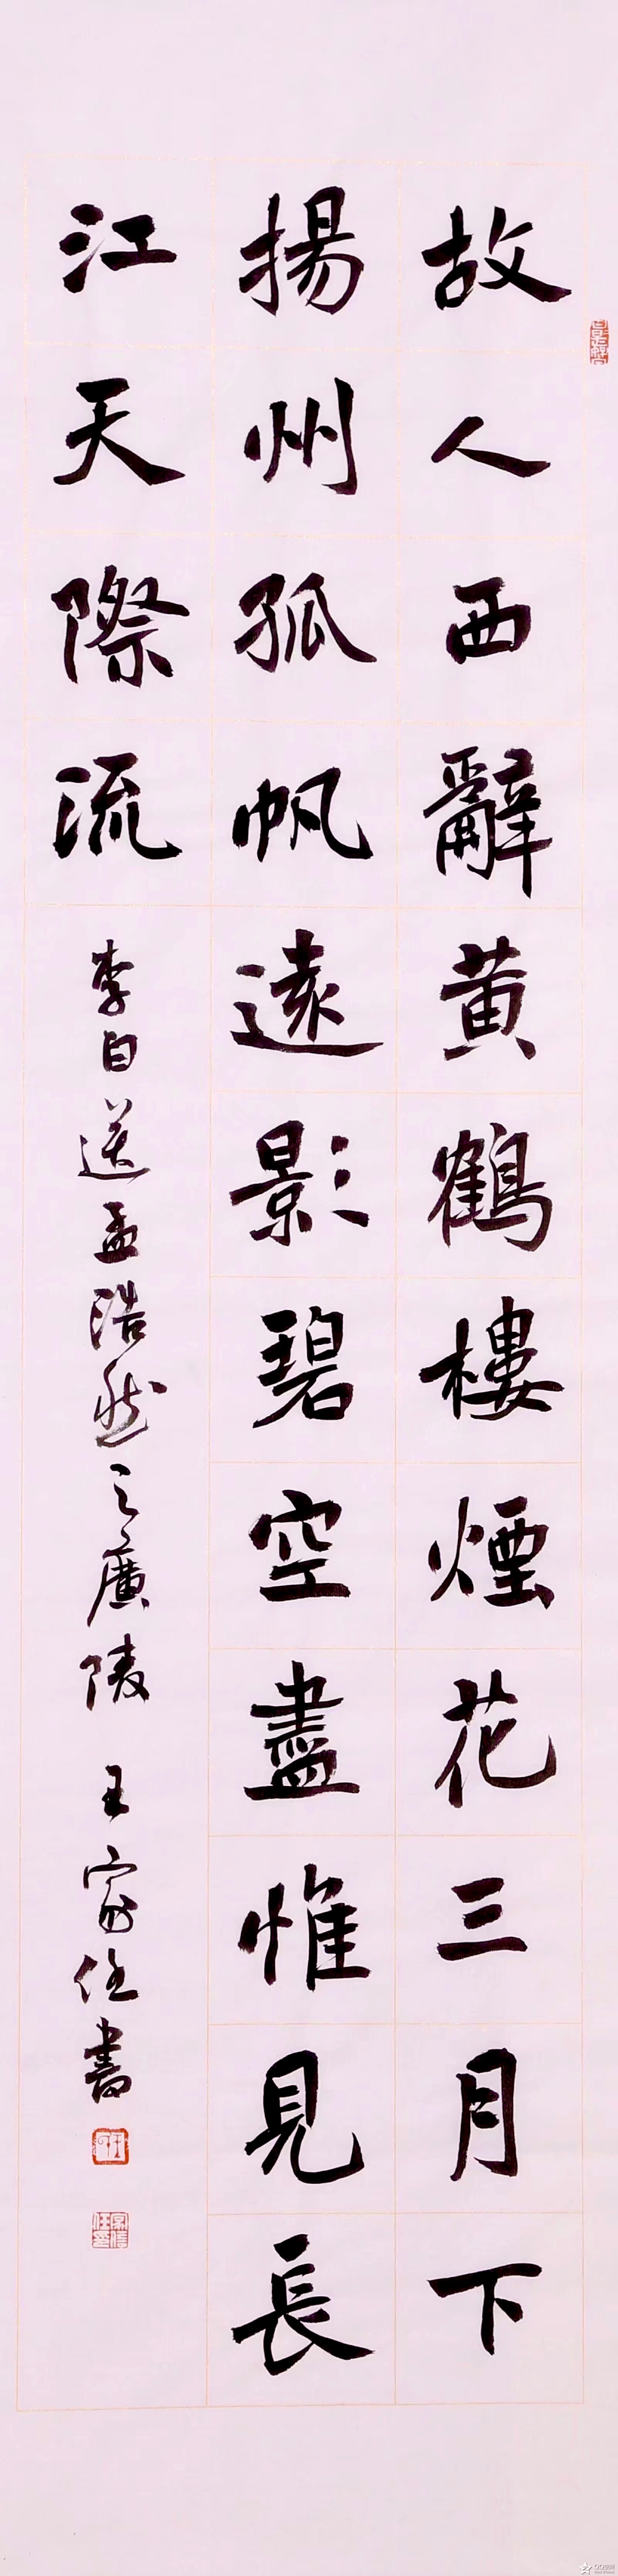 故人西辭黃鶴樓煙花三月下
揚州孤帆遠影碧空盡惟見長
江天際流
李白送孟浩然之廣陵 王家任書